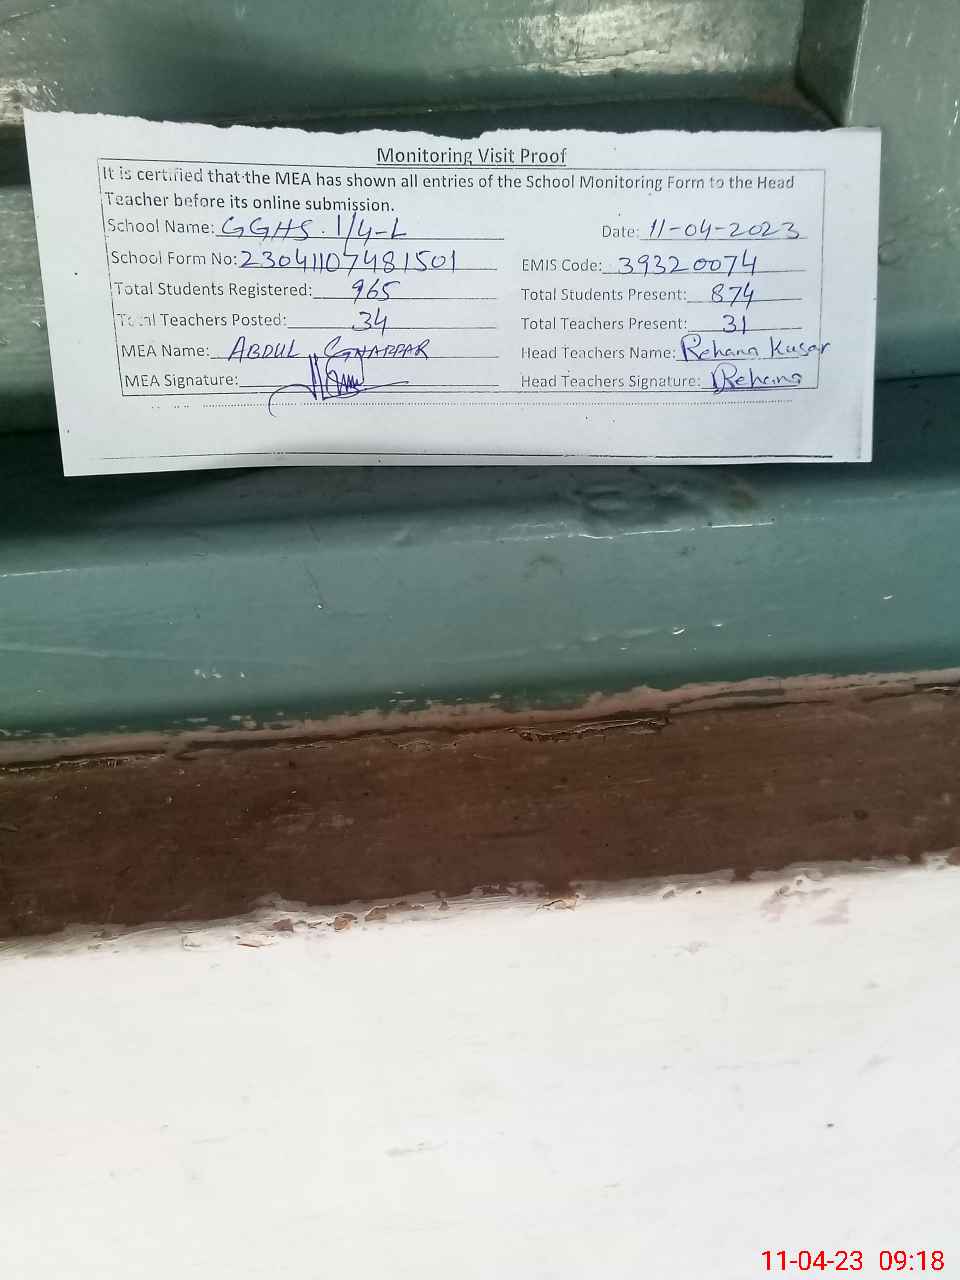 Monitoring Visit Proof
It is certified that the MEA has shown all entries of the School Monitoring Form to the Head
Teacher before its online submission.
School Name: GGHS. 1/4-L Date: 11-04-2023
School Form No: 23041107481501 EMIS Code: 39320074
Total Students Registered: 965 Total Students Present: 874
Total Teachers Posted: 34 Total Teachers Present: 31
MEA Name: ABDUL GHAFFAR Head Teachers Name: Rehana Kusar
MEA Signature: Head Teachers Signature: Rehana
11-04-23 09:18